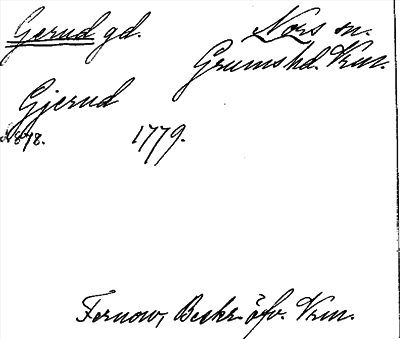 Gerud gd. Nors sn.
Grums hd. Vrm.
Gjerud
1779.
Fernow, Beskr. öfv. Vrm.